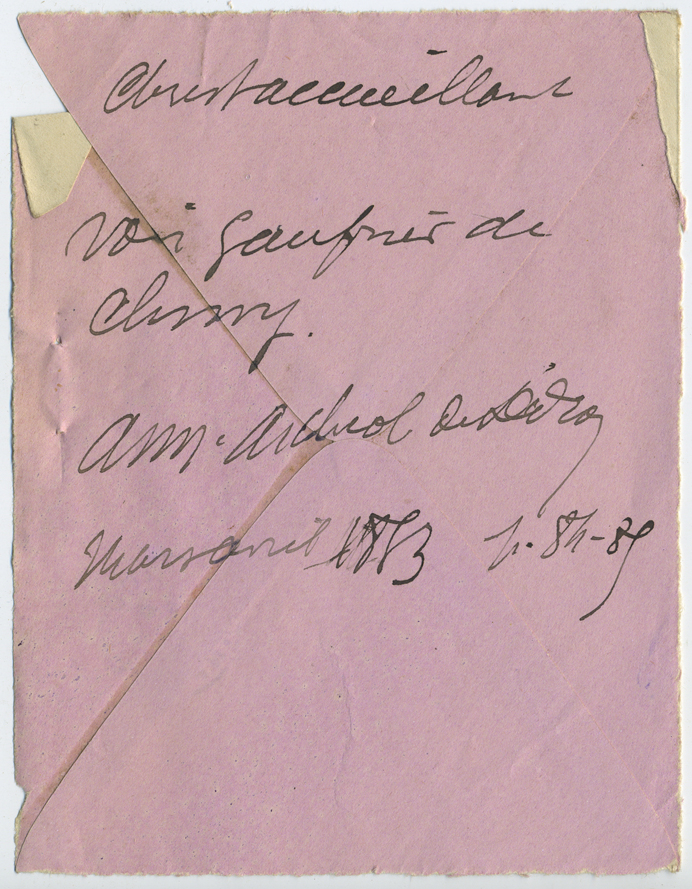 Christ accueillant
Voir gaufrier de
Cluny.
Ann. Archeol de Didron
Mars avril 1853 p. 84-89